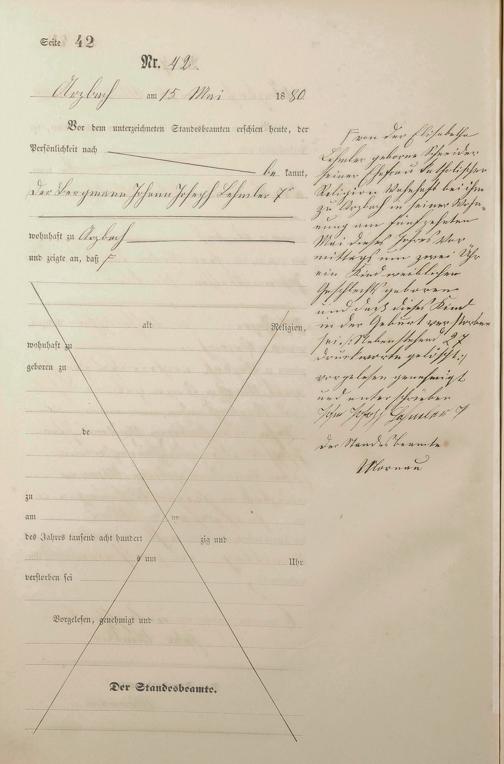 Seite 42
Nr. 42.
Arzbach am 15 Mai 1880.
Vor dem unterzeichneten Standesbeamten erschien heute, der
Persönlichkeit nach
be kannt,
der Bergmann Johann Joseph Lehmler
wohnhaft zu Arzbach
und zeigte an, daß
alt Religion,
wohnhaft zu
geboren zu
de
zu
am
des Jahres tausend acht hundert zig und
um Uhr
verstorben sei
Vorgelesen, genehmigt und
Der Standesbeamte.
von der Elisabetha
Lehmler geborne Schneider
seiner Ehefrau katholischer
Religion wohnhaft bei ihm
zu Arzbach in seiner Woh-
nung am fünfzehnten
Mai dieses Jahres Vor
mittags um zwei Uhr
ein Kind weiblichen
Geschlechts geboren
und daß dieses Kind
in der Geburt verstorben
sei. Nebenstehend 27
Druckworte gelöscht.
vorgelesen genehmigt
und unterschrieben
Joseph Lehmler
der Standesbeamte